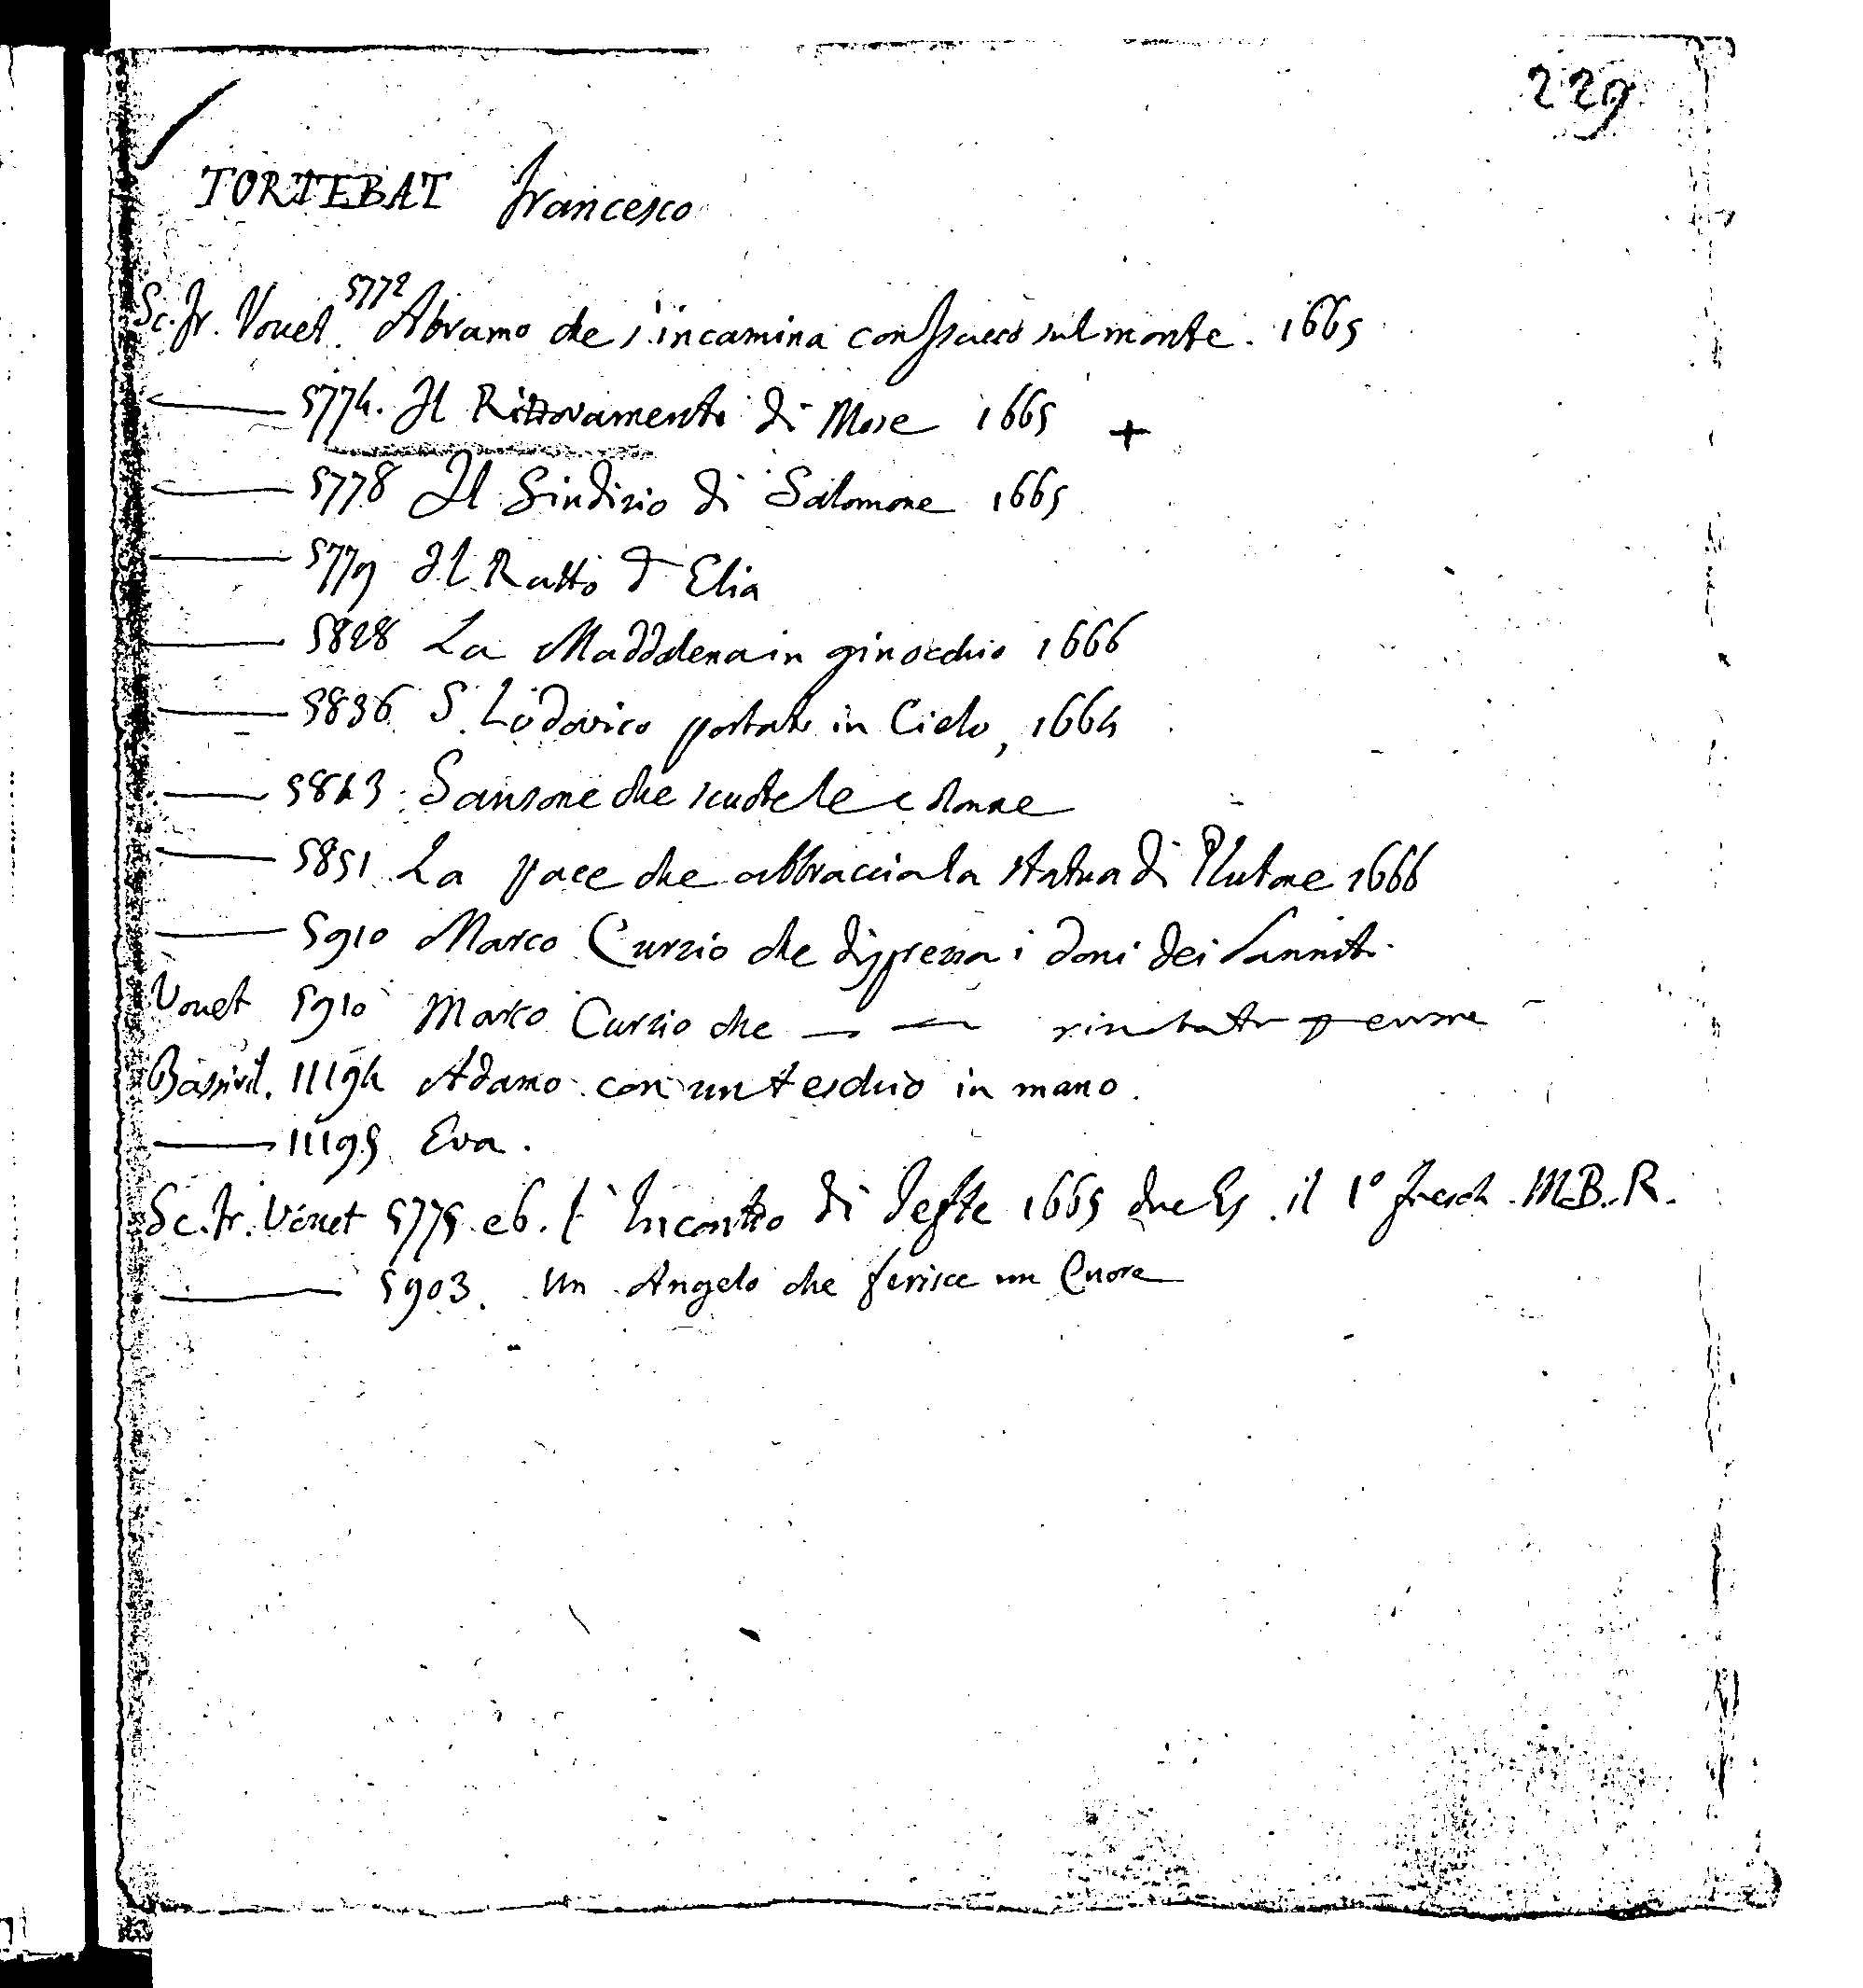 229
TORTEBAT Francesco
Sc. Fr. Vouet. 5772 Abramo che s'incamina con Isacco sul monte. 1665
5774. Il Ritrovamento di Mose 1665 +
5778 Il Giudizio di Salomone 1665
5779 Il Ratto d Elia
5828 La Maddalena in ginocchio 1666
5836 S. Lodovico portato in Cielo, 1664
5843. Sansone che scuote le colonne
5851 La pace che abbraccia la statua di Plutone 1666
5910 Marco Curzio che disprezza i doni dei Sanniti.
Vouet 5910 Marco Curzio che — —
11194 Adamo con un teschio in mano.
11195 Eva.
Sc. Fr. Vouet 5775. e 6. L'Incontro di Jefte 1665 due Es. il 1º fresch. M.B.R.
5903. Un Angelo che ferisce un Cuore